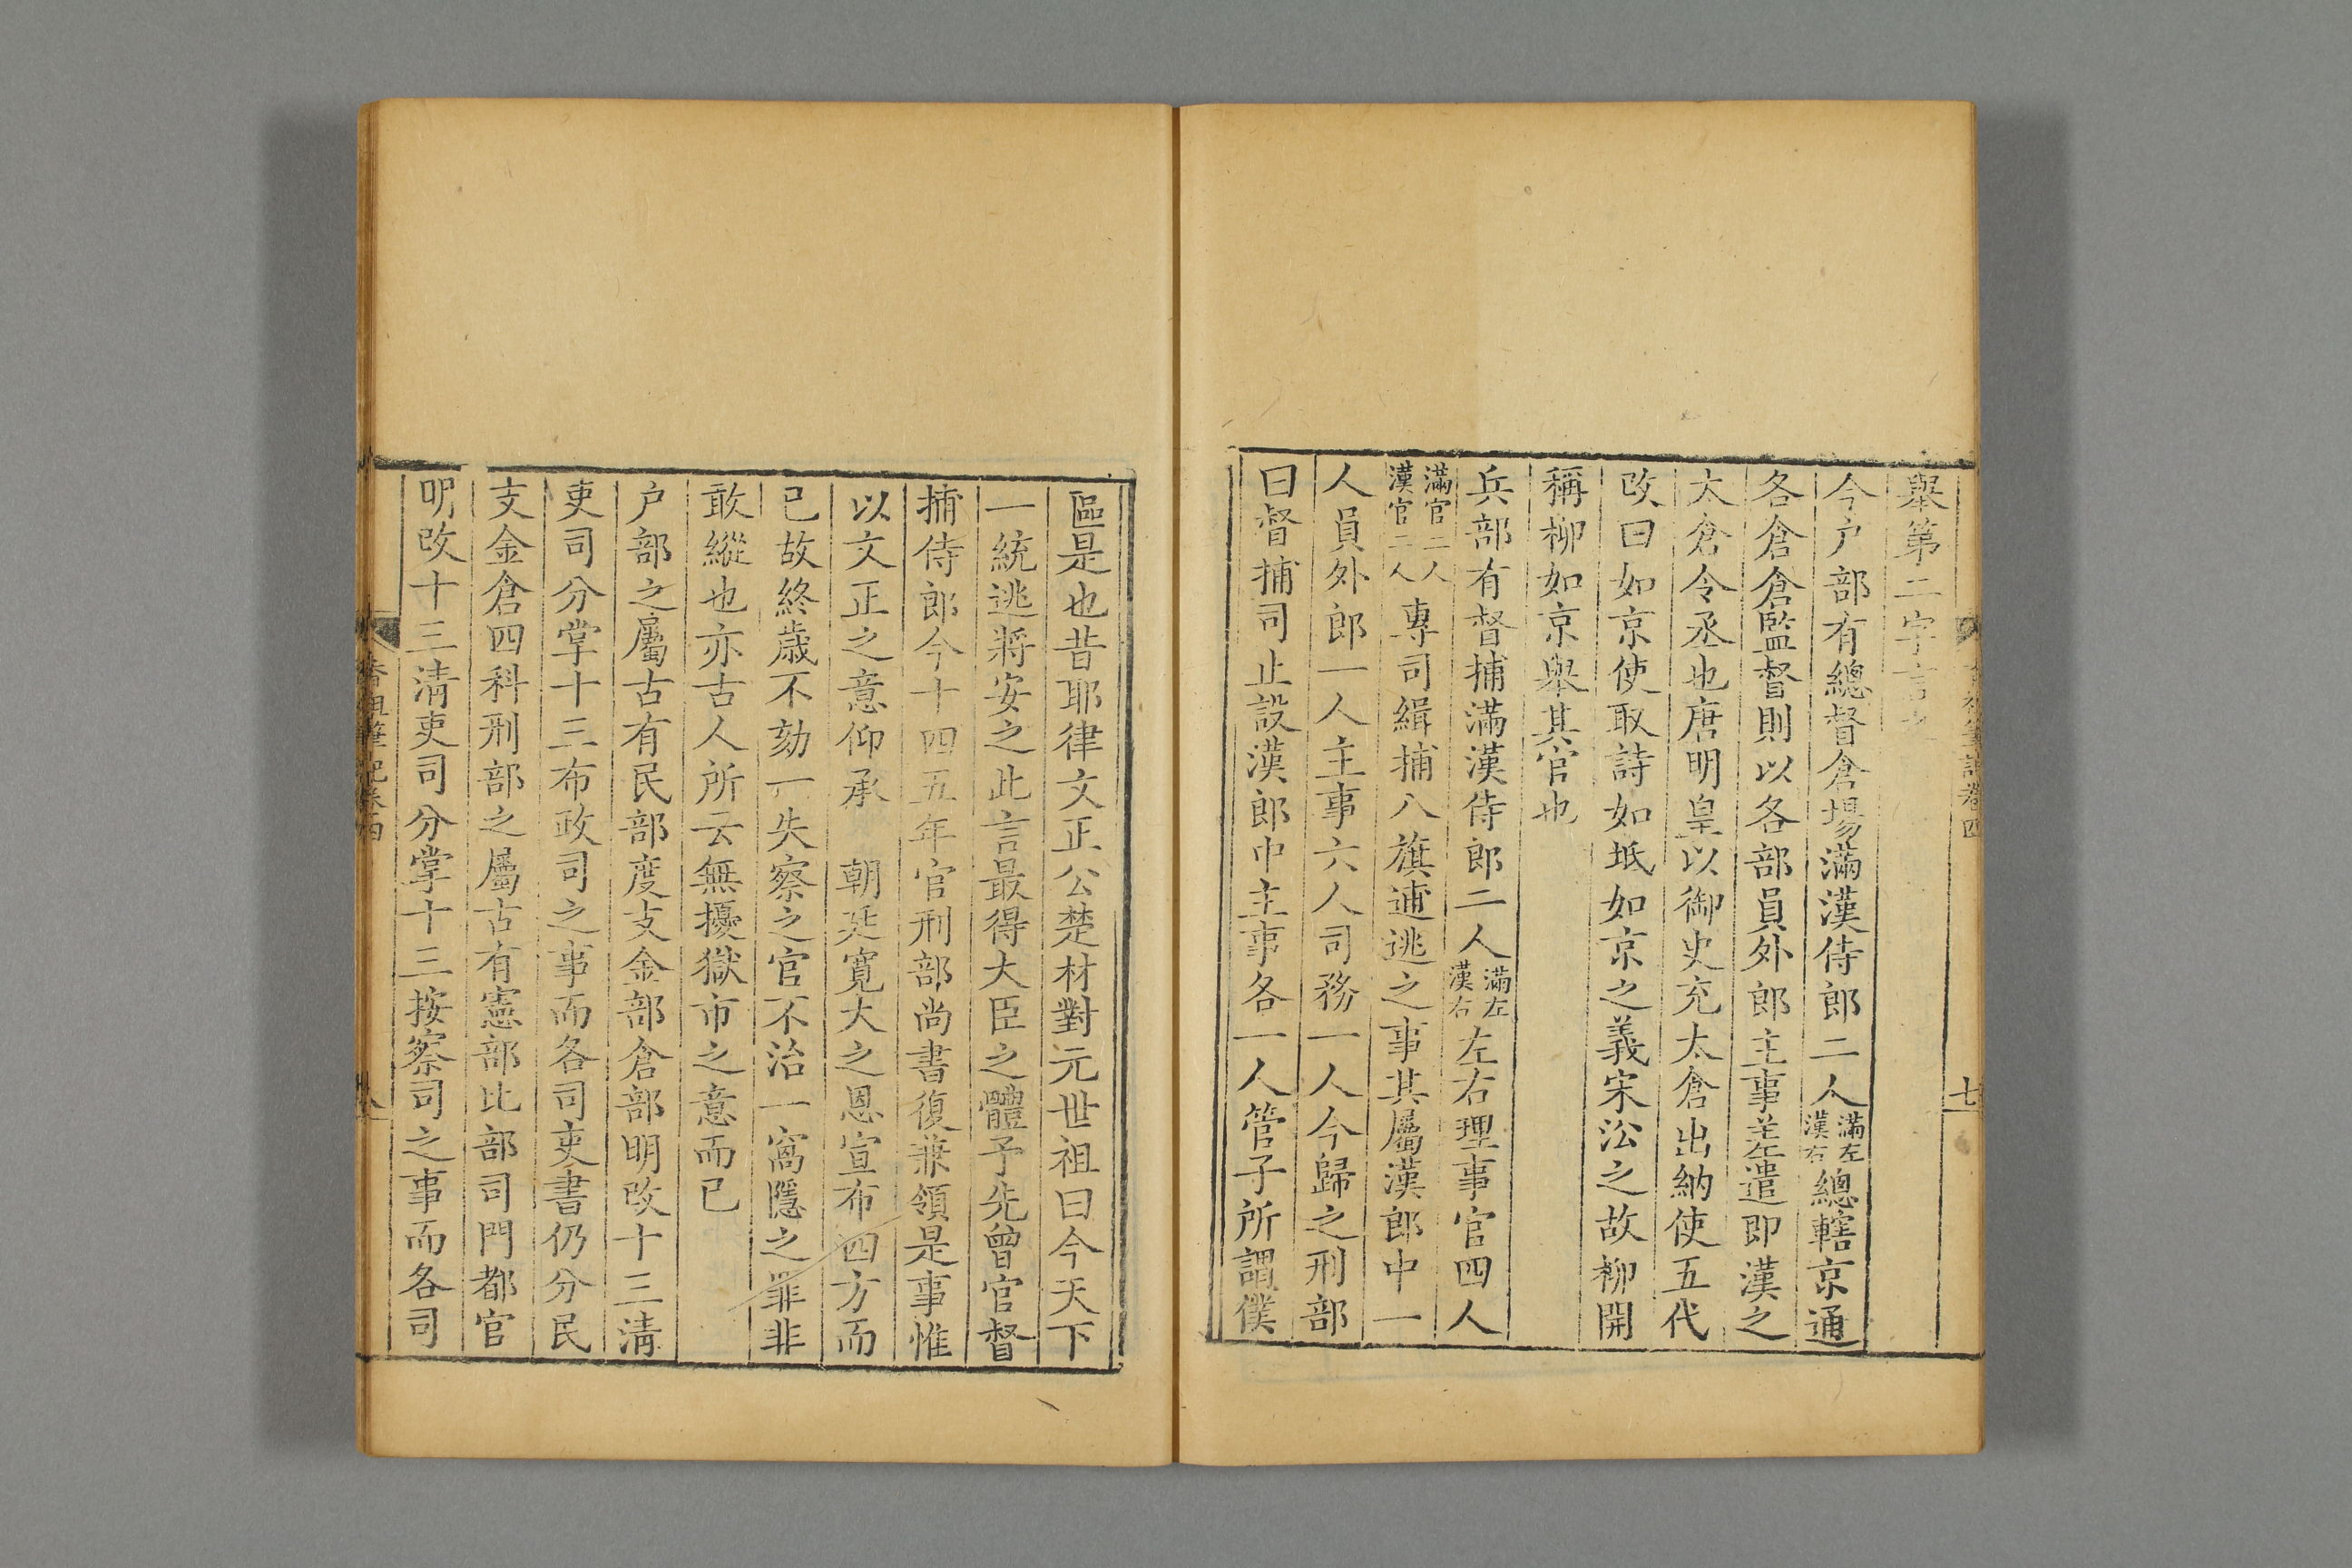 舉第二字言之
今户部有總督倉場滿漢侍郎二人滿左漢右總轄京通
各倉倉監督則以各部員外郎主事差遣即漢之
大倉令丞也唐明皇以御史充太倉出納使五代
改曰如京使取詩如坻如京之義宋㳂之故柳開
稱柳如京舉其官也
兵部有督捕滿漢侍郎二人滿左漢右左右理事官四人
滿官二人漢官二人專司緝捕八旗逋逃之事其屬漢郎中一
人員外郎一人主事六人司務一人今歸之刑部
曰督捕司止設漢郎中主事各一人管子所謂僕
區是也昔耶律文正公楚材對元世祖曰今天下
一統逃將安之此言最得大臣之體予先曾官督
捕侍郎今十四五年官刑部尚書復兼領是事惟
以文正之意仰承 朝廷寛大之恩宣布四方而
已故終歲不劾一失察之官不治一窩隱之罪非
敢縱也亦古人所云無擾獄市之意而已
户部之屬古有民部度支金部倉部明改十三清
吏司分掌十三布政司之事而各司吏書仍分民
支金倉四科刑部之屬古有憲部比部司門都官
明改十三清吏司分掌十三按察司之事而各司
香祖筆記卷四
七
香祖筆記卷四
八